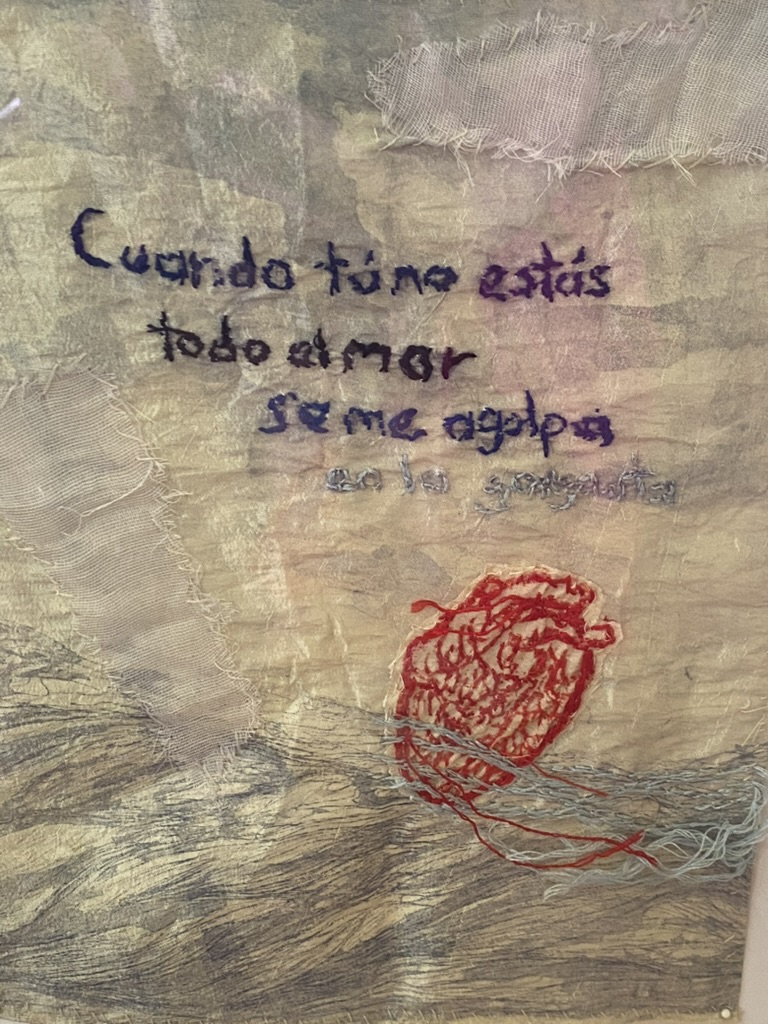 Cuando tú no estás
todo el mar
se me agolpa
en la garganta